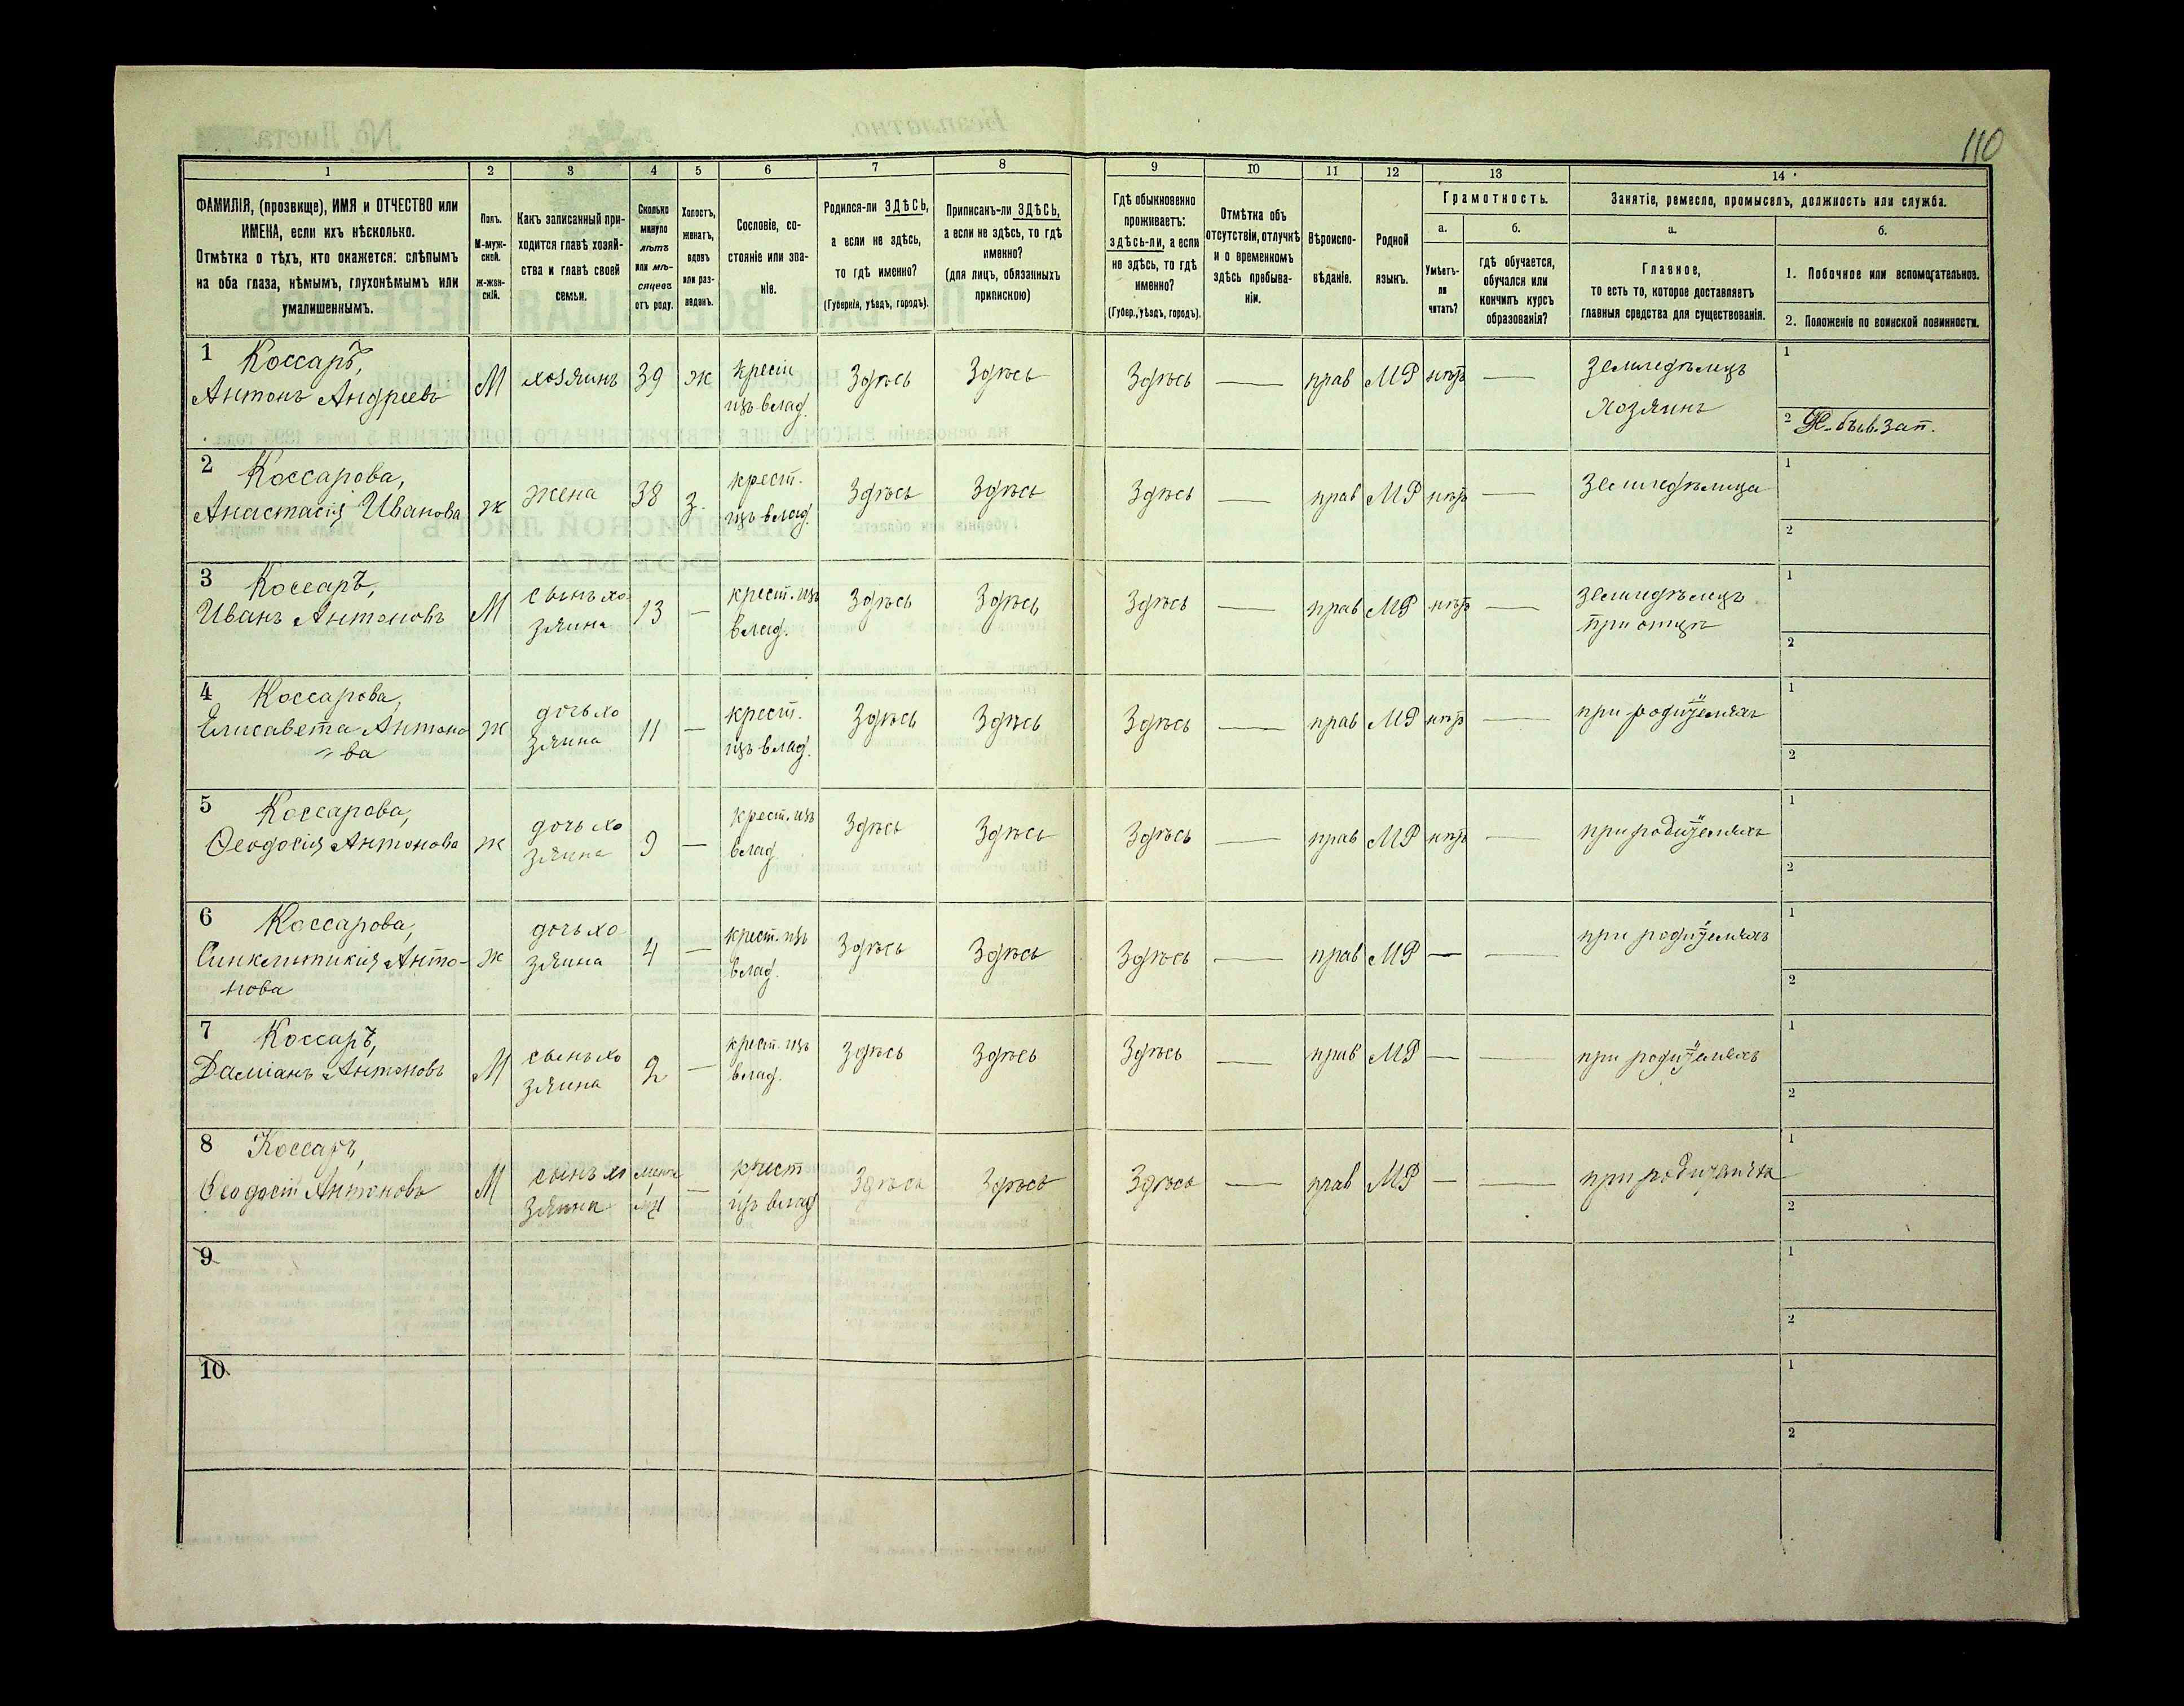 110
1 2 3 4 5 6 7 8 9 10 11 12 13 14
ФАМИЛІЯ, (прозвище), ИМЯ и ОТЧЕСТВО или
ИМЕНА, если ихъ нѣсколько.
Отмѣтка о тѣхъ, кто окажется: слѣпымъ
на оба глаза, нѣмымъ, глухонѣмымъ или
умалишеннымъ.
Полъ.
М-муж-
ской.
ж-жен-
скій.
Какъ записанный при-
ходится главѣ хозяй-
ства и главѣ своей
семьи.
Сколько
минуло
лѣтъ
или мѣ-
сяцевъ
отъ роду.
Холостъ,
женатъ,
вдовъ
или раз-
веденъ.
Сословіе, со-
стояніе или зва-
ніе.
Родился-ли ЗДѢСЬ,
а если не здѣсь,
то гдѣ именно?
(Губернія, уѣздъ, городъ).
Приписанъ-ли ЗДѢСЬ,
а если не здѣсь, то гдѣ
именно?
(для лицъ, обязанныхъ
припискою)
Гдѣ обыкновенно
проживаетъ:
здѣсь-ли, а если
не здѣсь, то гдѣ
именно?
(Губер., уѣздъ, городъ).
Отмѣтка объ
отсутствіи, отлучкѣ
и о временномъ
здѣсь пребыва-
ніи.
Вѣроиспо-
вѣданіе.
Родной
языкъ.
Грамотность.
а.
Умѣетъ-
ли
читать?
б.
гдѣ обучается,
обучался или
кончилъ курсъ
образованія?
Занятіе, ремесло, промыселъ, должность или служба.
а.
Главное,
то есть то, которое доставляетъ
главныя средства для существованія.
б.
1. Побочное или вспомогательное.
2. Положеніе по воинской повинности.
1 Коссаръ,
Антонъ Андреевъ
М хозяинъ 39 ж
крест
изъ влад.
Здѣсь Здѣсь Здѣсь — прав МР нѣтъ —
земледѣлецъ
хозяинъ
1
2 Н. бывъ. зап.
2 Коссарова,
Анастасія Иванова
ж жена 38 з.
крест.
изъ влад.
Здѣсь Здѣсь Здѣсь — прав МР нѣтъ —
земледѣлица
1
2
3 Коссаръ,
Иванъ Антоновъ
М
сынъ хо
зяина
13 —
крест. изъ
влад.
Здѣсь Здѣсь Здѣсь — прав МР нѣтъ —
земледѣлецъ
при отцѣ
1
2
4 Коссарова,
Елисавета Антоно
=ва
ж
дочь хо
зяина
11 —
крест.
изъ влад.
Здѣсь Здѣсь Здѣсь — прав МР нѣтъ —
при родителяхъ
1
2
5 Коссарова,
Ѳеодосія Антонова
ж
дочь хо
зяина
9 —
крест. изъ
влад
Здѣсь Здѣсь Здѣсь — прав МР нѣтъ —
при родителяхъ
1
2
6 Коссарова,
Синклитикія Анто-
нова
ж
дочь хо
зяина
4 —
крест. изъ
влад.
Здѣсь Здѣсь Здѣсь — прав МР — —
при родителяхъ
1
2
7 Коссаръ,
Даміанъ Антоновъ
М
сынъ хо
зяина
2 —
крест. изъ
влад.
Здѣсь Здѣсь Здѣсь — прав МР — —
при родителяхъ
1
2
8 Коссаръ,
Ѳеодосій Антоновъ
М
сынъ хо
зяина
—
крест
изъ влад
Здѣсь Здѣсь Здѣсь — прав МР — —
при родителяхъ
1
2
9
1
2
10
1
2